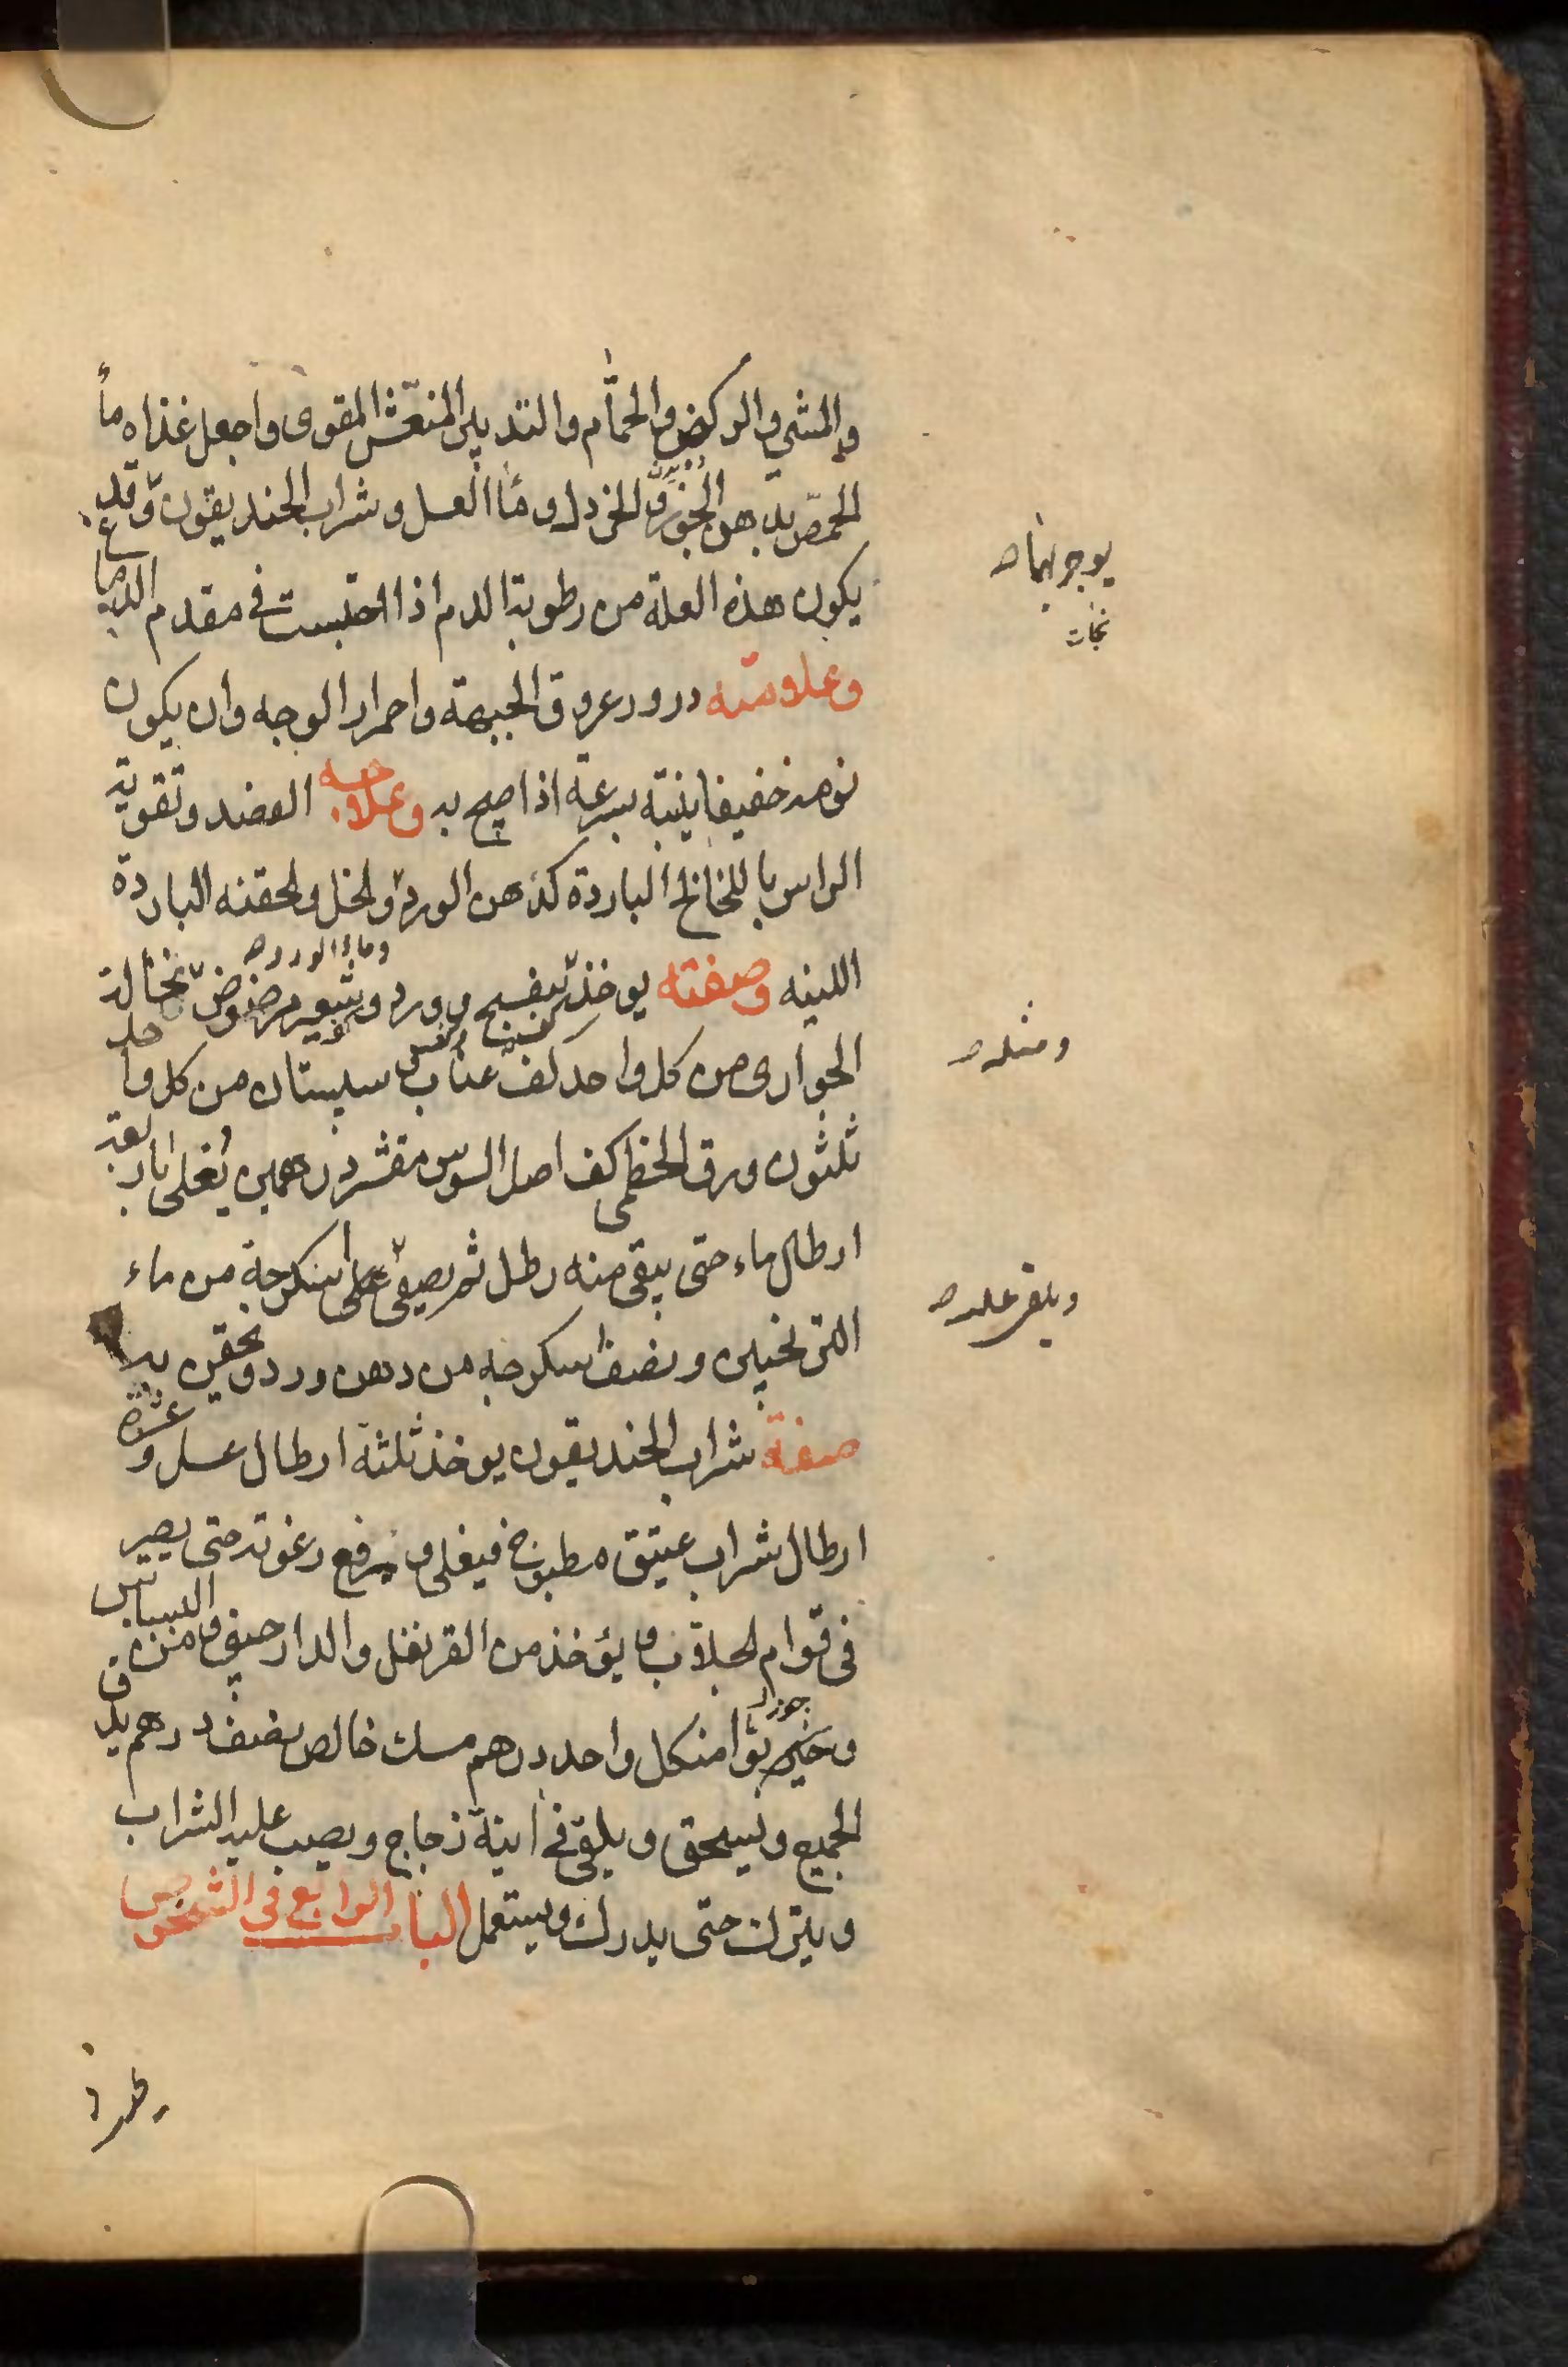 والمشي والركض والحمام والتدبير المنعش المقوى واجعل غذاه مأ
الحمص بدهن الجوز والخردل ومآ العسل وشراب الخنديقون وقد
يكون هذه العلة من رطوبة الدم اذا احتبست في مقدم الدماغ
وعلامته درور عروق الجبهة واحمرار الوجه وان يكون
نومه خفيفا ينتبه بسرعة اذا صيح به وعلاجه الفصد وتقوية
الراس باللخالخ الباردة كدهن الورد والخل والحقنه الباردة
وماء الورد
اللينه وصفته يوخذ بنفسج وورد وشعير مرضوض نخالة
الحوارى من كل واحد كف عناب سبستان من كل واحد
ثلثون ورق الخطمى كف اصل السوس مقشر درهمين يغلى باربعة
ارطال ماء حتى يبقى منه رطل ثم يصفى على اسكرجة من ماء
الترنجبين ونصف سكرجه من دهن ورد ويحقن به
صفة شراب الخنديقون يوخذ ثلثة ارطال عسل وعشرة
ارطال شراب عتيق مطبوخ فيغلى ويرفع رغوته حتى يصير
في قوام الجلاب ويؤخذ من القرنفل والدارصينى ومن البسباس
جوز
وخير بوا من كل واحد درهم مسك خالص نصف درهم يدق
الجميع ويسحق ويلقى في انية زجاج ويصب عليه الشراب
ويترك حتى يدرك ويستعمل الباب الرابع في الشخوص
ومثله